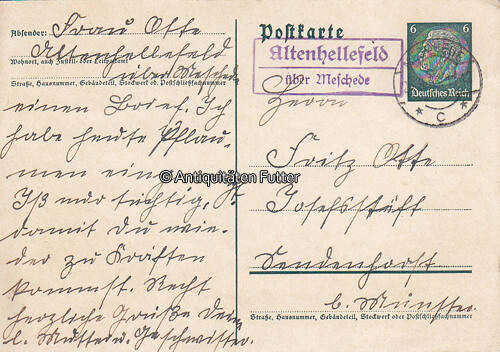 Absender: Frau Otte
Altenhellefeld
Wohnort, auch Zustell- oder Leitpostamt
über Meschede
Straße, Hausnummer, Gebäudeteil, Stockwerk od. Postschließfachnummer
einen Brief. Ich
habe heute Pflau-
men
Iß nur tüchtig,
damit du wie-
der zu Kräften
kommst. Recht
herzliche Grüße Deine
l. Mutter u. Geschwister.
Postkarte
Altenhellefeld
über Meschede
6 6
Deutsches Reich
* C *
Herrn
Fritz Otte
Josefsstift
Sendenhorst
b. Münster.
Straße, Hausnummer, Gebäudeteil, Stockwerk oder Postschließfachnummer
© Antiquitäten Futter